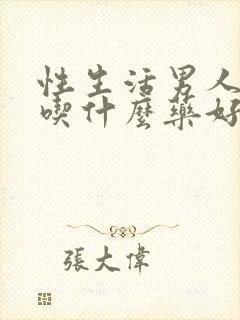 性生活男人
喫什麼藥好
張大偉